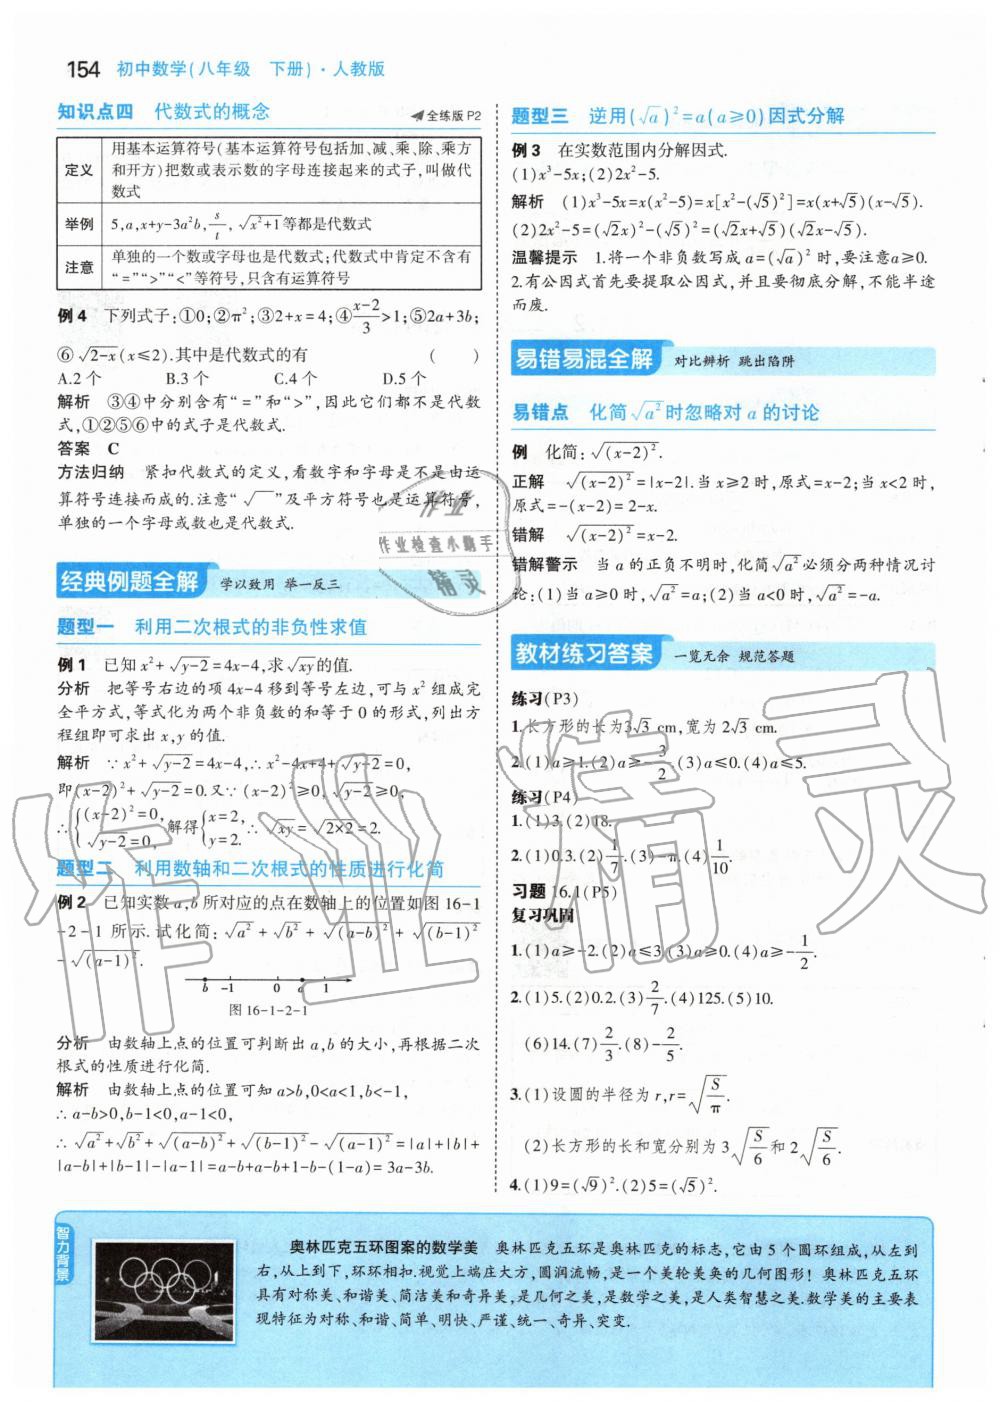 154 初中数学(八年级 下册)·人教版
知识点四 代数式的概念 全练版 P2
定义 用基本运算符号(基本运算符号包括加、减、乘、除、乘方
和开方)把数或表示数的字母连接起来的式子,叫做代
数式
举例 5,a,x+y-3a²b,s/t,√(x²+1)等都是代数式
注意 单独的一个数或字母也是代数式;代数式中肯定不含有
“=”“>”“<”等符号,只含有运算符号
例 4 下列式子:①0;②π²;③2+x=4;④(x-2)/3>1;⑤2a+3b;
⑥√(2-x)(x≤2).其中是代数式的有 ( )
A.2 个 B.3 个 C.4 个 D.5 个
解析 ③④中分别含有“=”和“>”,因此它们都不是代数
式,①②⑤⑥中的式子是代数式.
答案 C
方法归纳 紧扣代数式的定义,看数字和字母是不是由运
算符号连接而成的.注意“√ ”及平方符号也是运算符号,
单独的一个字母或数也是代数式.
经典例题全解 学以致用 举一反三
题型一 利用二次根式的非负性求值
例 1 已知 x²+√(y-2)=4x-4,求√(xy)的值.
分析 把等号右边的项 4x-4 移到等号左边,可与 x² 组成完
全平方式,等式化为两个非负数的和等于 0 的形式,列出方
程组即可求出 x,y 的值.
解析 ∵x²+√(y-2)=4x-4,∴x²-4x+4+√(y-2)=0,
即(x-2)²+√(y-2)=0.又∵(x-2)²≥0,√(y-2)≥0,
∴{(x-2)²=0, √(y-2)=0, 解得{x=2, y=2. ∴√(xy)=√(2×2)=2.
题型二 利用数轴和二次根式的性质进行化简
例 2 已知实数 a,b 所对应的点在数轴上的位置如图 16-1
-2-1 所示.试化简:√(a²)+√(b²)+√((a-b)²)+√((b-1)²)
-√((a-1)²).
b -1 0 a 1
图 16-1-2-1
分析 由数轴上点的位置可判断出 a,b 的大小,再根据二次
根式的性质进行化简.
解析 由数轴上点的位置可知 a>b,0<a<1,b<-1,
∴a-b>0,b-1<0,a-1<0,
∴√(a²)+√(b²)+√((a-b)²)+√((b-1)²)-√((a-1)²)=|a|+|b|+
|a-b|+|b-1|-|a-1|=a-b+a-b+1-b-(1-a)=3a-3b.
题型三 逆用(√a)²=a(a≥0)因式分解
例 3 在实数范围内分解因式.
(1)x³-5x;(2)2x²-5.
解析 (1)x³-5x=x(x²-5)=x[x²-(√5)²]=x(x+√5)(x-√5).
(2)2x²-5=(√2x)²-(√5)²=(√2x+√5)(√2x-√5).
温馨提示 1.将一个非负数写成 a=(√a)² 时,要注意a≥0.
2.有公因式首先要提取公因式,并且要彻底分解,不能半途
而废.
易错易混全解 对比辨析 跳出陷阱
易错点 化简√(a²)时忽略对 a 的讨论
例 化简:√((x-2)²).
正解 √((x-2)²)=|x-2|.当 x≥2 时,原式=x-2;当 x<2 时,
原式=-(x-2)=2-x.
错解 √((x-2)²)=x-2.
错解警示 当 a 的正负不明时,化简√(a²)必须分两种情况讨
论:(1)当 a≥0 时,√(a²)=a;(2)当 a<0 时,√(a²)=-a.
教材练习答案 一览无余 规范答题
练习(P3)
1.长方形的长为3√3 cm,宽为 2√3 cm.
2.(1)a≥1.(2)a≥-3/2.(3)a≤0.(4)a≤5.
练习(P4)
1.(1)3.(2)18.
2.(1)0.3.(2)1/7.(3)-π.(4)1/10.
习题 16.1(P5)
复习巩固
1.(1)a≥-2.(2)a≤3.(3)a≥0.(4)a≥-1/2.
2.(1)5.(2)0.2.(3)2/7.(4)125.(5)10.
(6)14.(7)2/3.(8)-2/5.
3.(1)设圆的半径为 r,r=√(S/π).
(2)长方形的长和宽分别为 3√(S/6)和 2√(S/6).
4.(1)9=(√9)².(2)5=(√5)².
智力背景
奥林匹克五环图案的数学美 奥林匹克五环是奥林匹克的标志,它由 5 个圆环组成,从左到
右,从上到下,环环相扣.视觉上端庄大方,圆润流畅,是一个美轮美奂的几何图形!奥林匹克五环
具有对称美、和谐美、简洁美和奇异美,是几何之美,是数学之美,是人类智慧之美.数学美的主要表
现特征为对称、和谐、简单、明快、严谨、统一、奇异、突变.
作业
作业检查小助手
精灵
作业精灵